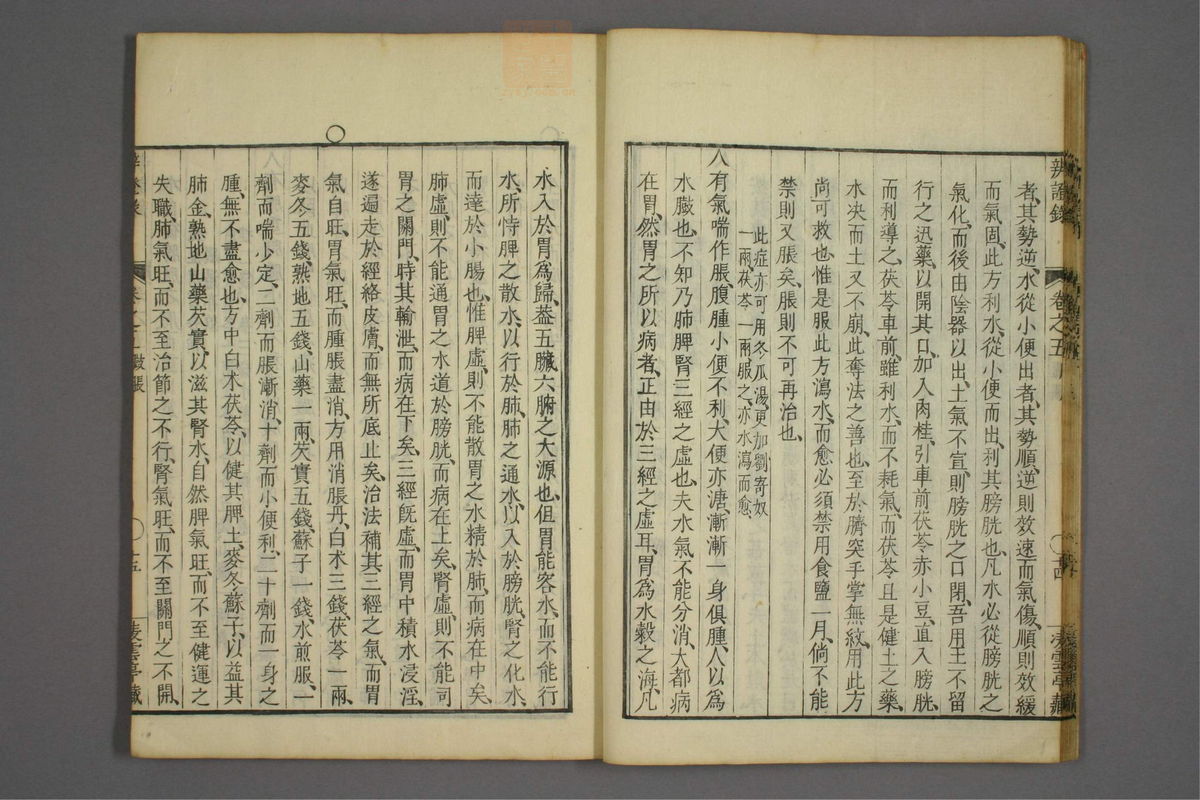 辨證錄 卷之五 十四 凌雲亭藏
者、其勢逆、水從小便出者、其勢順、逆則效速而氣傷、順則效緩
而氣固、此方利水、從小便而出、利其膀胱也、凡水必從膀胱之
氣化、而後由陰器以出、土氣不宣、則膀胱之口閉、吾用王不留
行之迅藥、以開其口、加入肉桂、引車前、茯苓、赤小豆、直入膀胱、
而利導之、茯苓車前、雖利水、而不耗氣、而茯苓且是健土之藥、
水泱而土又不崩、此奪法之善也、至於臍突手掌無紋、用此方
尚可救也、惟是服此方瀉水、而愈必須禁用食鹽一月、倘不能
禁則又脹矣、脹則不可再治也、
此症亦可用冬瓜湯、更加劉寄奴
一兩、茯苓一兩服之、亦水瀉而愈、
人有氣喘作脹、腹腫小便不利、大便亦溏、漸漸一身俱腫、人以為
水臌也、不知乃肺脾腎三經之虛也、夫水氣不能分消、大都病
在胃、然胃之所以病者、正由於三經之虛耳、胃為水穀之海、凡
水入於胃為歸、蓋五臟六腑之大源也、但胃能容水、而不能行
水、所恃脾之散水、以行於肺、肺之通水、以入於膀胱、腎之化水、
而達於小腸也、惟脾虛、則不能散胃之水精於肺、而病在中矣、
肺虛、則不能通胃之水道於膀胱、而病在上矣、腎虛、則不能司
胃之關門、時其輸泄、而病在下矣、三經既虛、而胃中積水浸淫、
遂遍走於經絡皮膚、而無所底止矣、治法補其三經之氣、而胃
氣自旺、胃氣旺、而腫脹盡消、方用消脹丹、白朮三錢、茯苓一兩、
麥冬五錢、熟地五錢、山藥一兩、芡實五錢、蘇子一錢、水煎服、一
劑而喘少定、二劑而脹漸消、十劑而小便利、二十劑而一身之
腫、無不盡愈也、方中白朮茯苓、以健其脾土、麥冬蘇子、以益其
肺金、熟地山藥芡實、以滋其腎水、自然脾氣旺、而不至健運之
失職、肺氣旺、而不至治節之不行、腎氣旺、而不至關門之不開、